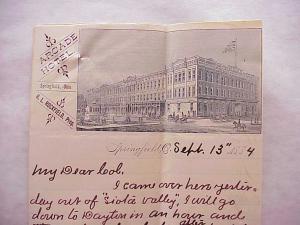 ARCADE
HOTEL
Springfield, Ohio
Springfield, O. Sept. 13" 1884
My Dear Col.
I came over here yester-
day out of "Siota valley", I will go
down to Dayton in an hour and